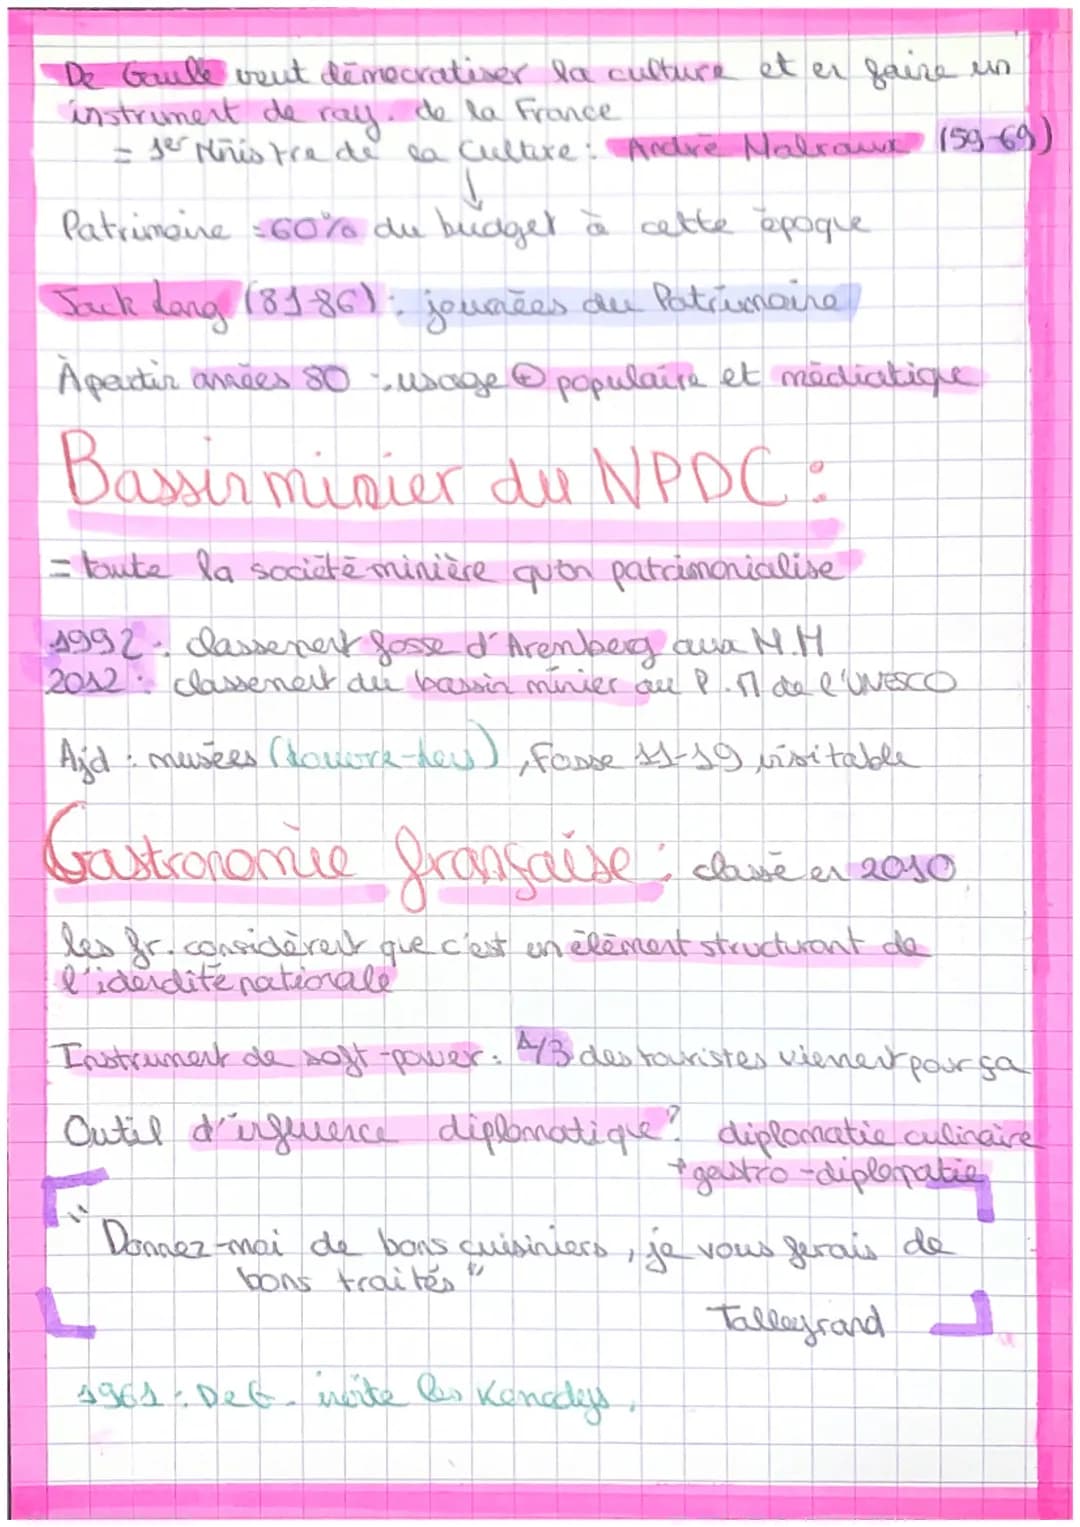 De Gaulle veut démocratiser la culture et en faire un
instrument de ray. de la France
= 1er Ministre de la Culture : André Malraux (59-69)
↓
Patrimoine = 60% du budget à cette époque
Jack Lang (81-86) : journées du Patrimoine
À partir années 80 : usage ⊕ populaire et médiatique
Bassin minier du NPDC :
= toute la société minière qu'on patrimonialise
1992 : classement fosse d'Arenberg aux M.H
2012 : classement du bassin minier au P.M de l'UNESCO
Ajd : musées (Louvre-Lens), Fosse 11-19 visitable
Gastronomie française : classé en 2010
les fr. considèrent que c'est un élément structurant de
l'identité nationale
Instrument de soft-power : 1/3 des touristes viennent pour ça
Outil d'influence diplomatique : diplomatie culinaire
+ gastro-diplomatie
"Donnez-moi de bons cuisiniers, je vous ferais de
bons traités"
Talleyrand
1961 : De G. invite les Kenedys.